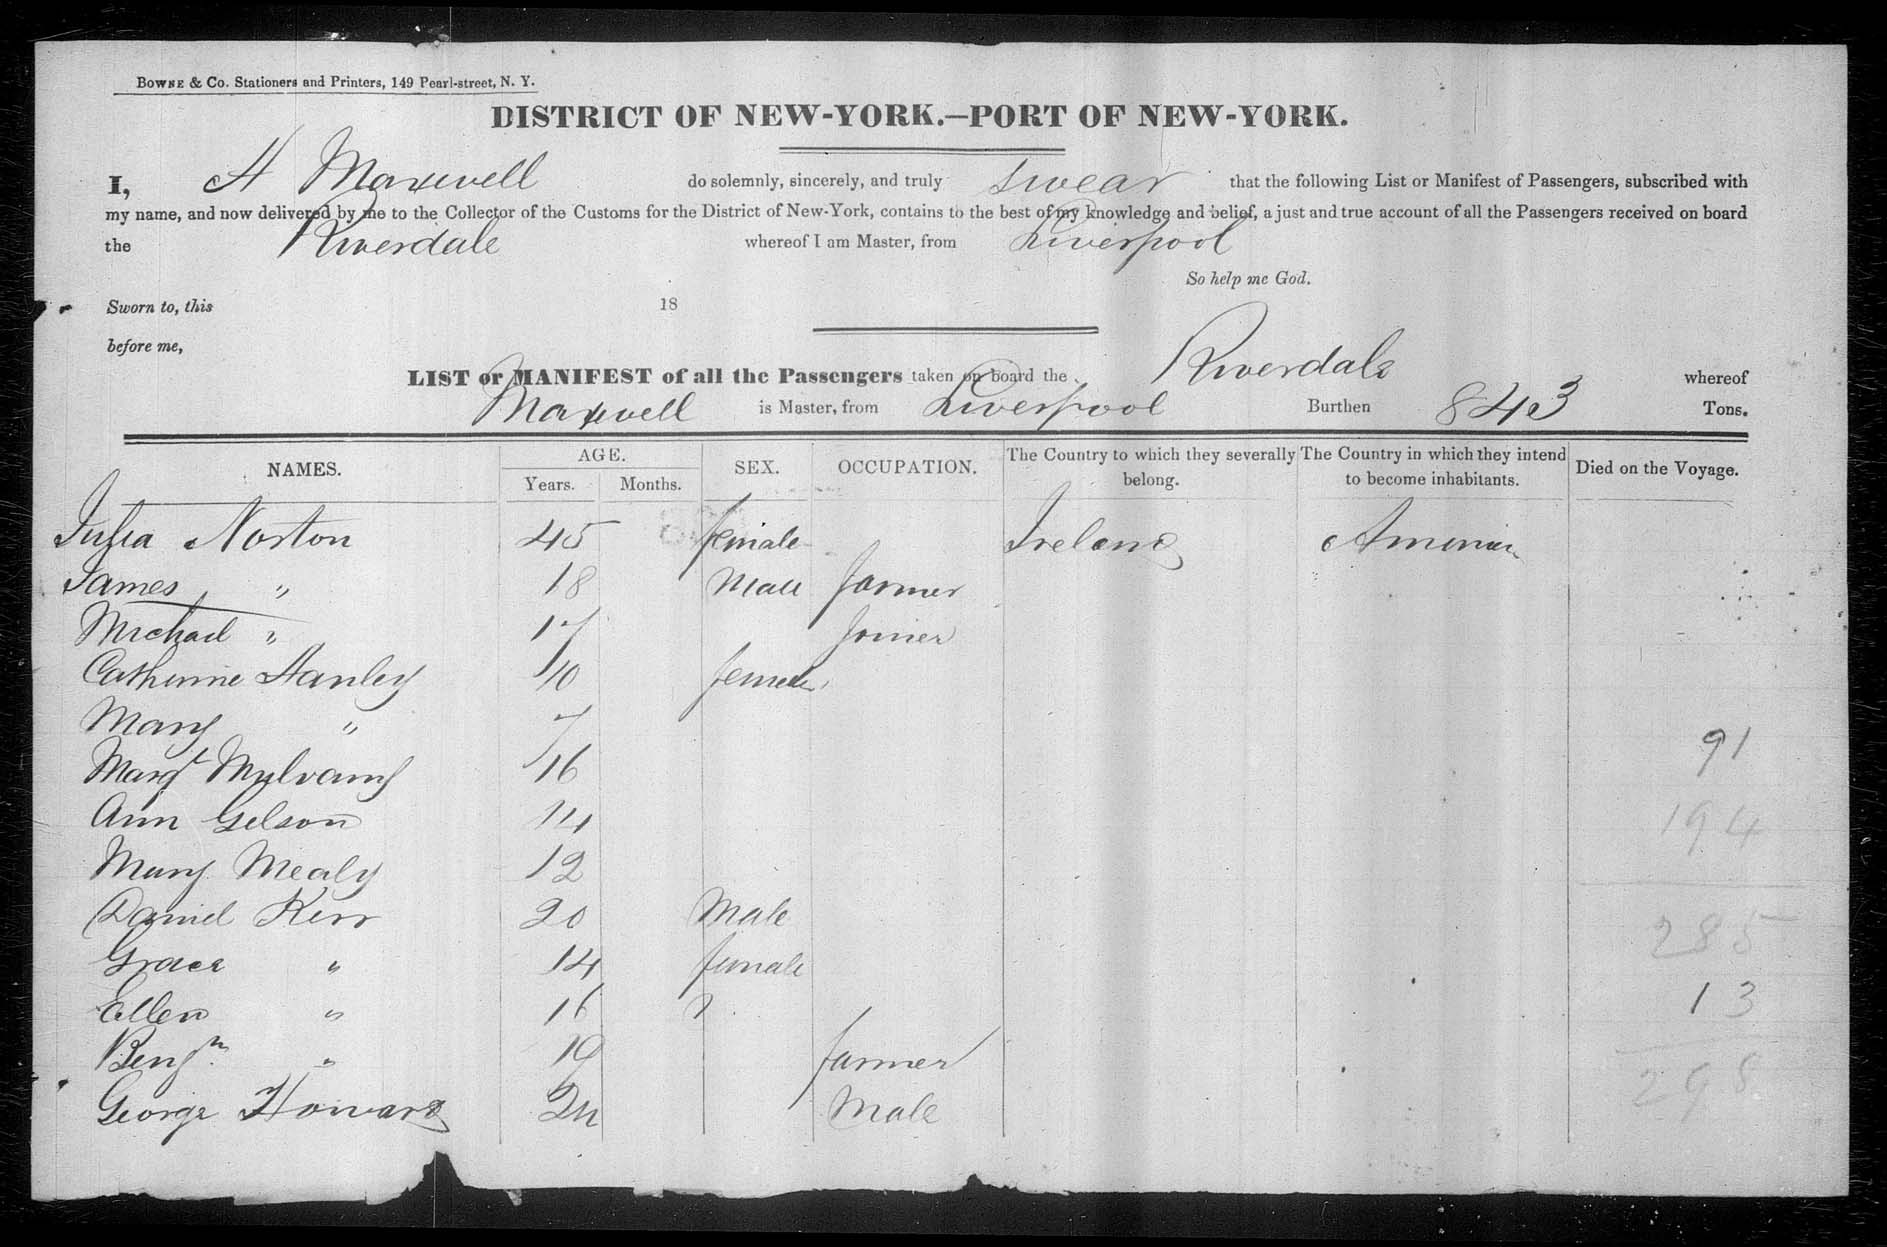 Bowne & Co. Stationers and Printers, 149 Pearl-street, N. Y.
DISTRICT OF NEW-YORK.—PORT OF NEW-YORK.
I, A Maxwell do solemnly, sincerely, and truly swear that the following List or Manifest of Passengers, subscribed with
my name, and now delivered by me to the Collector of the Customs for the District of New-York, contains to the best of my knowledge and belief, a just and true account of all the Passengers received on board
the Riverdale whereof I am Master, from Liverpool
So help me God.
Sworn to, this 18
before me,
LIST or MANIFEST of all the Passengers taken on board the Riverdale whereof
Maxwell is Master, from Liverpool Burthen 843 Tons.
NAMES. AGE. Years. Months. SEX. OCCUPATION. The Country to which they severally belong. The Country in which they intend to become inhabitants. Died on the Voyage.
Julia Norton 45 female Ireland America
James " 18 Male farmer
Michael " 17 Joiner
Catherine Hanley 10 female
Mary " 7
Margt Mulvany 16
91
Ann Gelson 14
194
Mary Mealy 12
Daniel Kerr 20 Male
285
Grace " 14 female
Ellen " 16
13
Benjn " 19 farmer
298
George Howard 24 Male